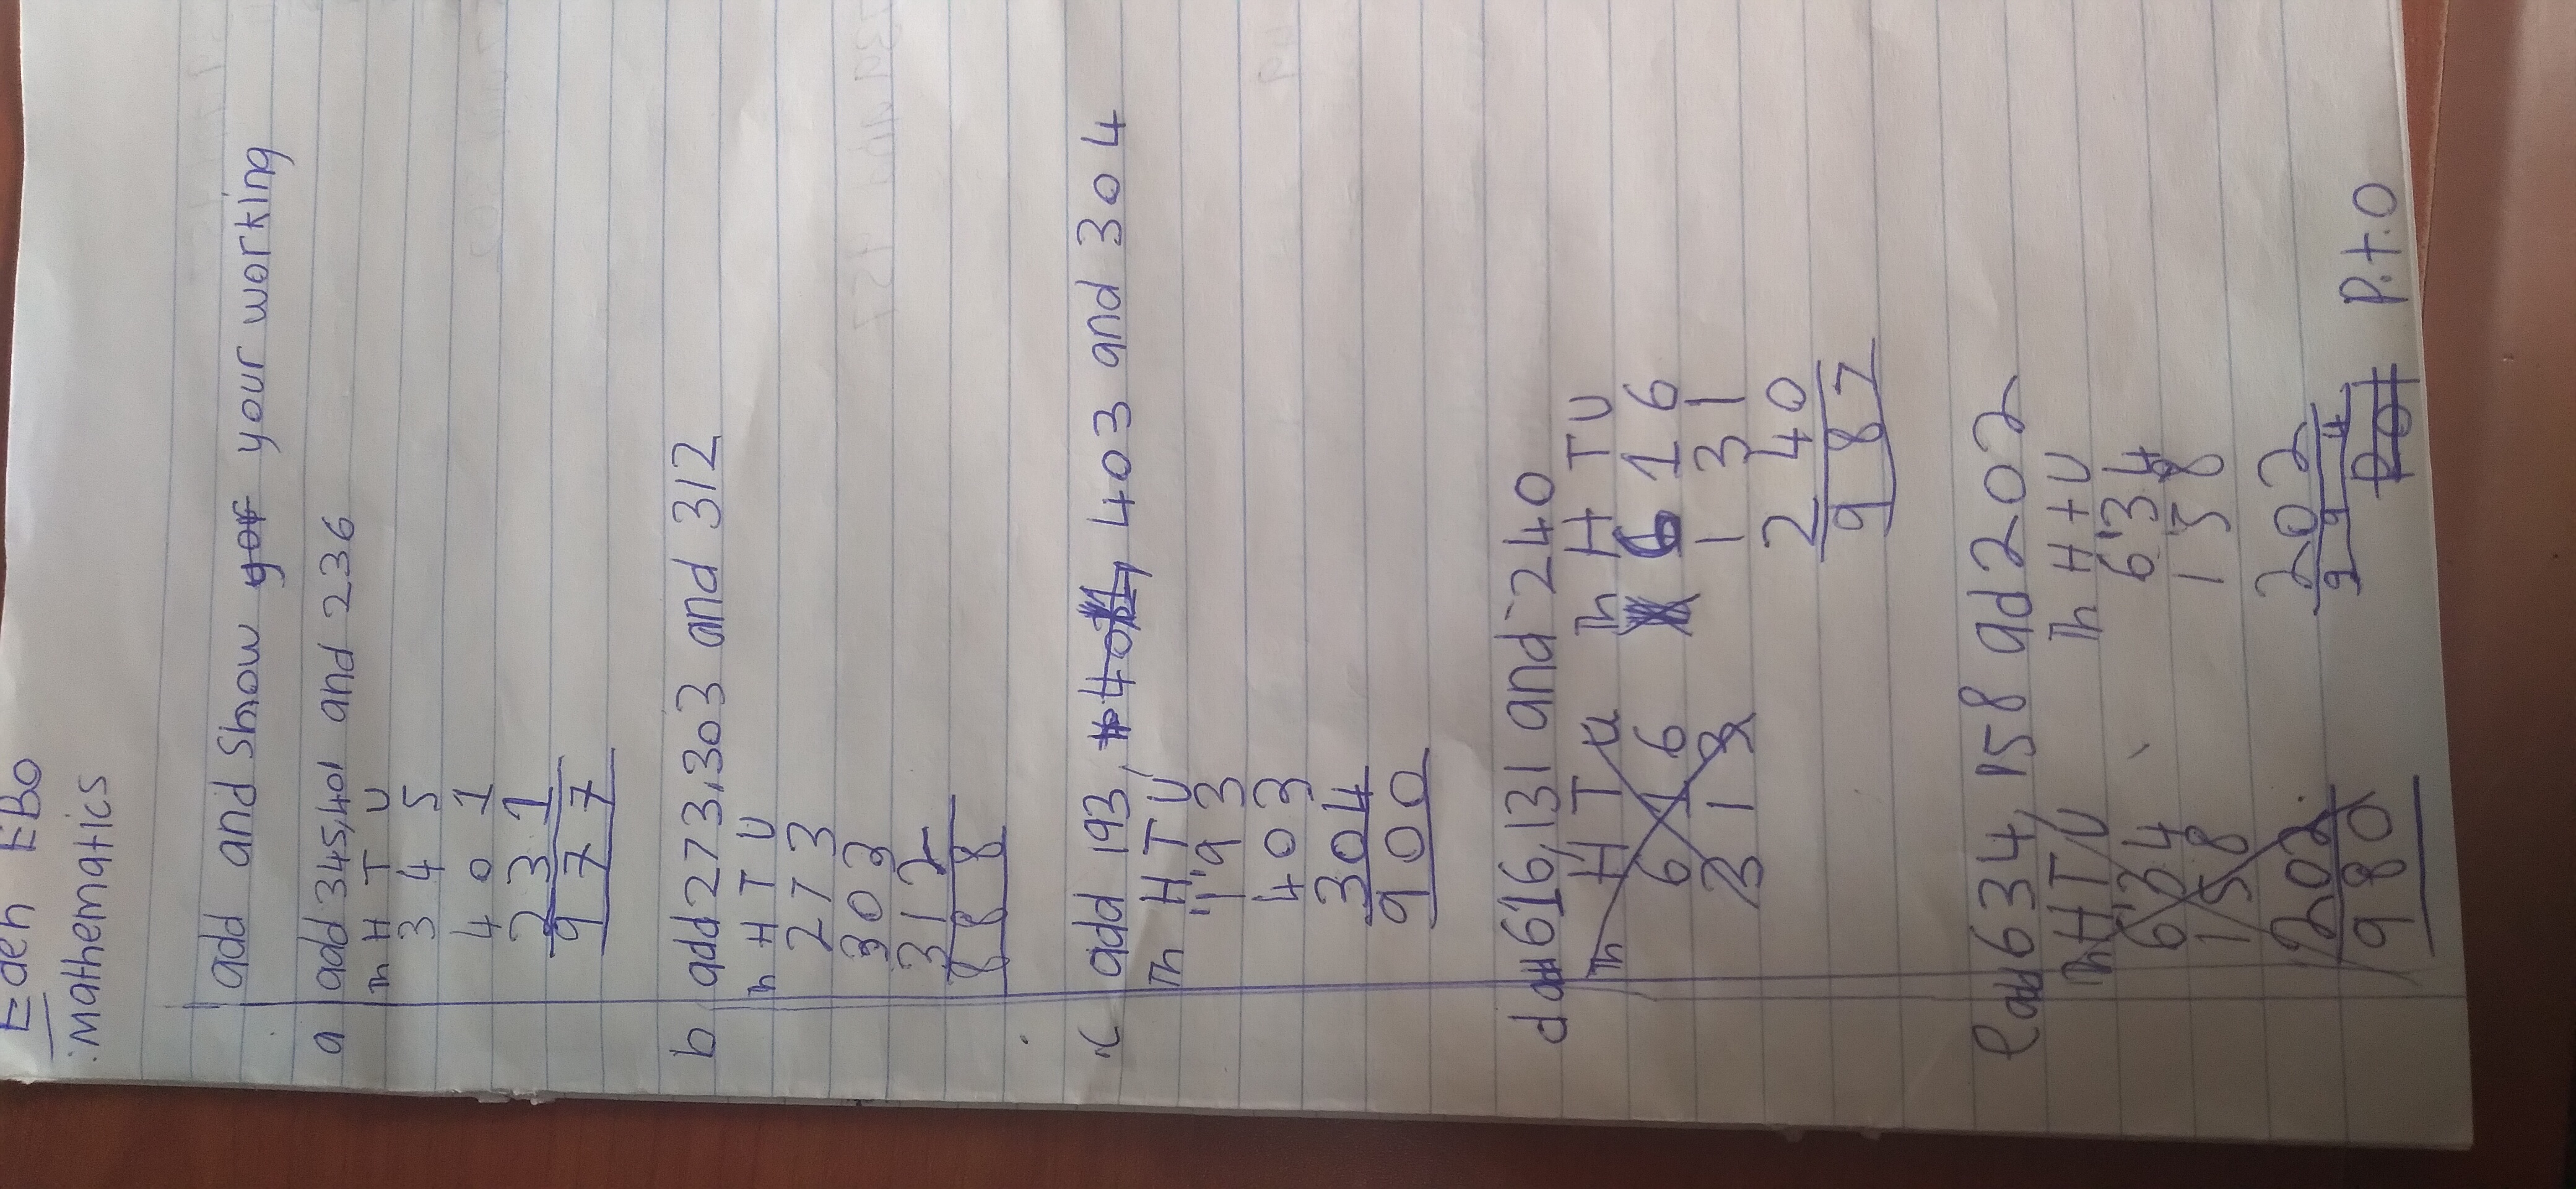 Eden EBO
:Mathematics
add and Show your working
a add 345,401 and 236
Th H T U
3 4 5
4 0 1
2 3 1
9 7 7
b add 273,303 and 312
Th H T U
2 7 3
3 0 3
3 1 2
8 8 8
c add 193, 403 and 304
Th H T U
1 1 9 3
4 0 3
3 0 4
9 0 0
d add 616,131 and 240
Th H T U Th H T U
6 1 6 6 1 6
3 1 3 1 3 1
2 4 0
9 8 7
e add 634, 158 ad 202
Th H T U Th H t U
6 1 3 4 6 1 3 4
1 5 8 1 5 8
2 0 2 2 0 2
9 8 0 9 9 4
P.t.O